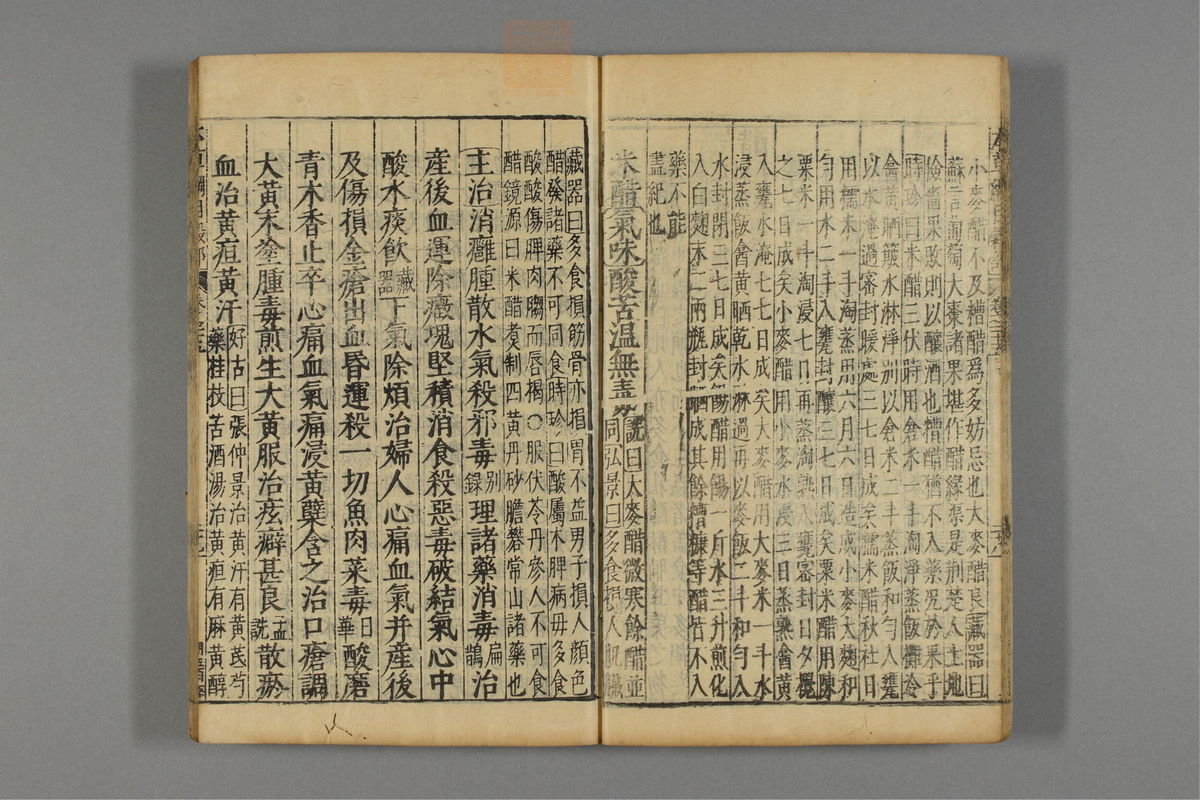 小麥醋不及糟醋爲多妨忌也大麥醋良藏器曰
蘇言葡萄大棗諸果堪作醋緣渠是荆楚人土地
儉嗇果敗則以釀酒也糟醋猶不入藥况於果乎
時珍曰米醋三伏時用倉米一斗淘淨蒸飯攤冷
盦黃晒簸水淋淨別以倉米二斗蒸飯和勻入甕
以水淹過密封暖處三七日成矣糯米醋秋社日
用糯米一斗淘蒸用六月六日造成小麥大麴和
勻用水二斗入甕封釀三七日成矣粟米醋用陳
粟米一斗淘浸七日再蒸淘熟入甕密封日夕攪
之七日成矣小麥醋用小麥水浸三日蒸熟盦黃
入甕水淹七七日成矣大麥醋用大麥米一斗水
浸蒸飯盦黃晒乾水淋過再以麥飯二斗和勻入
水封閉三七日成矣餳醋用餳一斤水三升煎化
入白麴末二兩瓶封晒成其餘糟糠等醋皆不入
藥不能
盡紀也
米醋氣味酸苦温無毒詵曰大麥醋微寒餘醋並同弘景曰多食損人肌臟
藏器曰多食損筋骨亦損胃不益男子損人顔色
醋發諸藥不可同食時珍曰酸屬木脾病毋多食
酸酸傷脾肉䐢而唇揭○服茯苓丹參人不可食
醋鏡源曰米醋煑制四黃丹砂膽礬常山諸藥也
主治消癰腫散水氣殺邪毒别錄理諸藥消毒扁鵲治
產後血運除癥塊堅積消食殺惡毒破結氣心中
酸水痰飲藏器下氣除煩治婦人心痛血氣并產後
及傷損金瘡出血昏運殺一切魚肉菜毒日華酸磨
青木香止卒心痛血氣痛浸黃蘗含之治口瘡調
大黃末塗腫毒煎生大黃服治痃癖甚良孟詵散瘀
血治黃疸黃汗好古曰張仲景治黃汗有黃芪芍藥桂枝苦酒湯治黃疸有麻黃醇